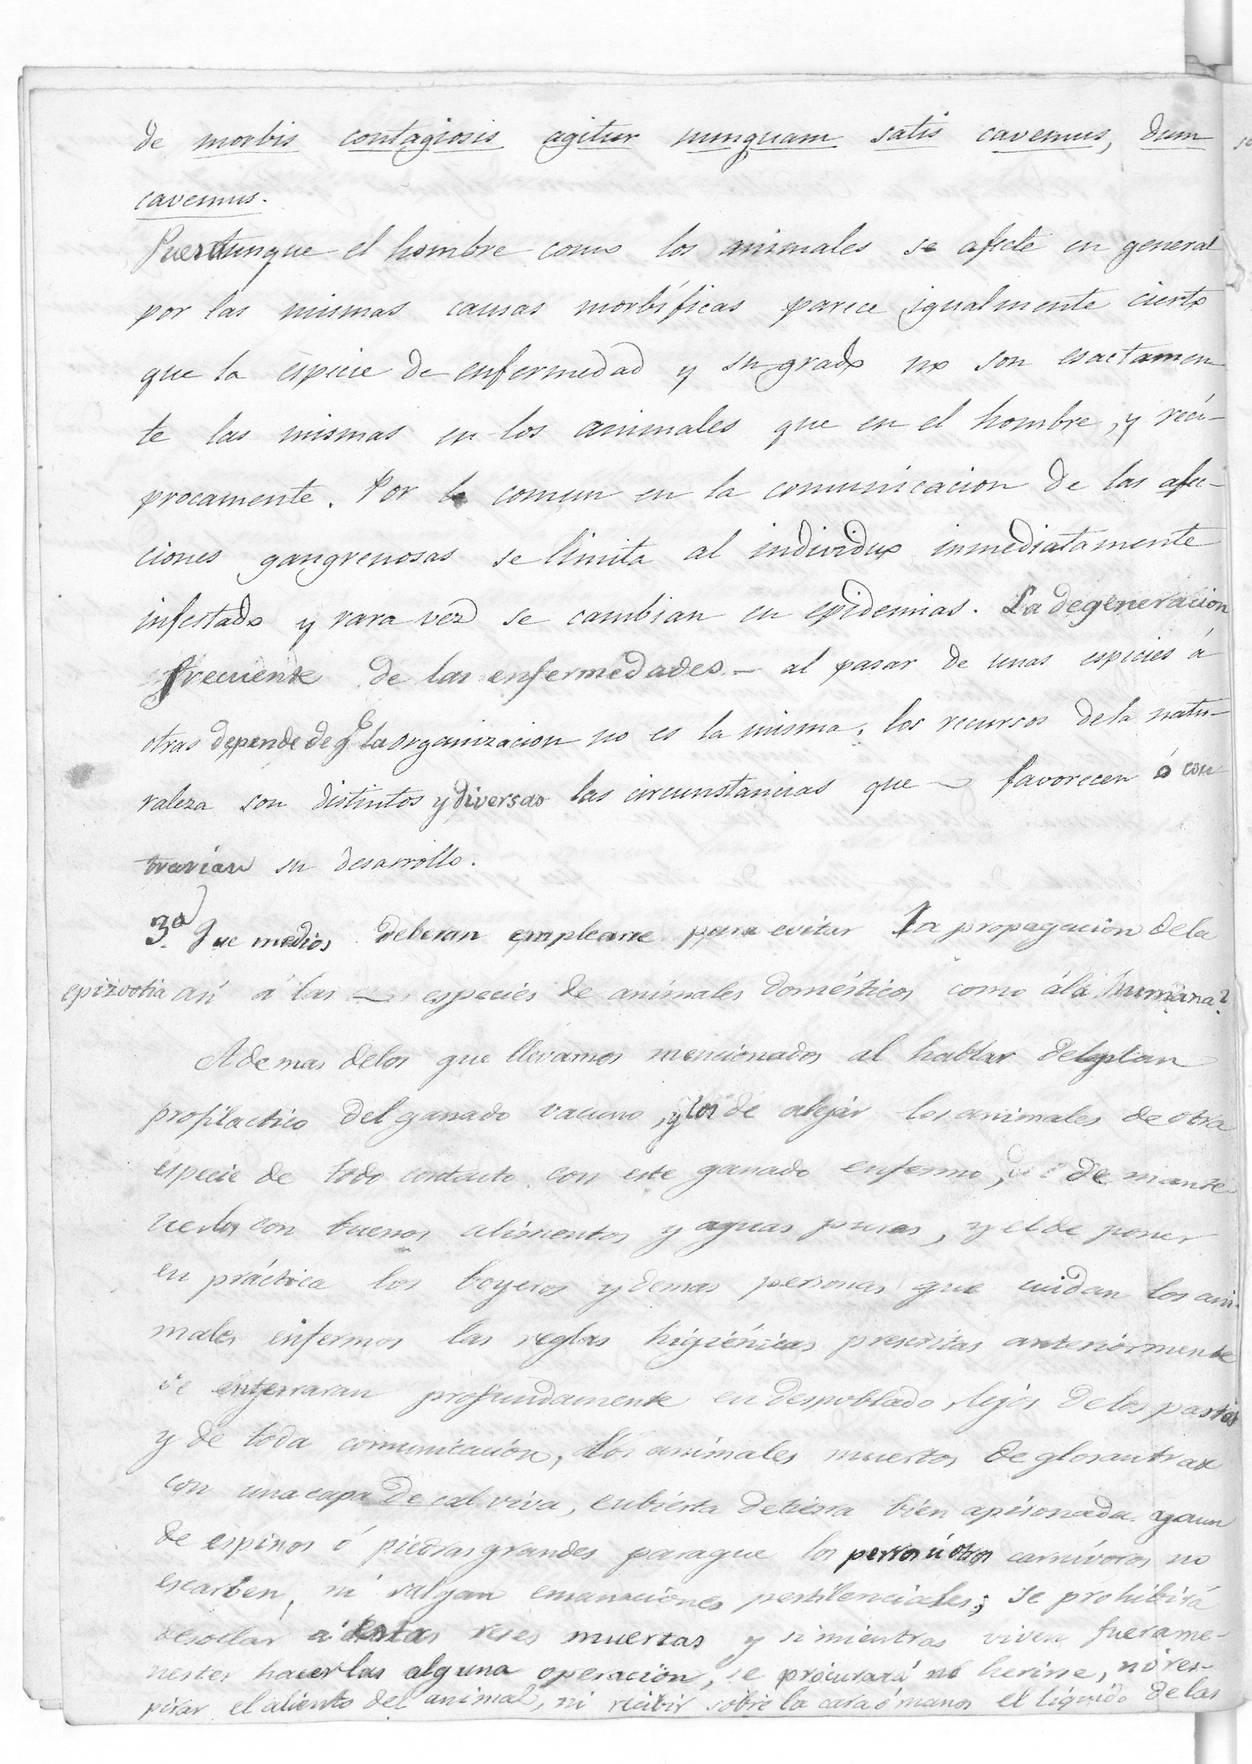 de morbis contagiosis agitur nunquam satis cavemus, dum
cavemus.
Pues aunque el hombre como los animales se afecte en general
por las mismas causas morbíficas parece igualmente cierto
que la especie de enfermedad y su grado no son esactamen
te las mismas en los animales que en el hombre, y recí-
procamente. Por lo comun en la comunicacion de las afec-
ciones gangrenosas se limita al individuo inmediatamente
infestado y rara vez se cambian en epidemias. La degeneracion
frecuente de las enfermedades al pasar de unas especies á
otras depende de q. la organizacion no es la misma, los recursos dela natu-
raleza son distintos y diversas las circunstancias que favorecen ó con
trarían su desarrollo.
3ª Que medios deberan emplearse para evitar la propagacion dela
epizootia asi á las especies de animales domésticos como ála humana?
Ademas delos que llevamos mencionados al hablar del plan
profilactico del ganado vacuno, y los de alejar los animales de otra
especie de todo contacto con este ganado enfermo, de mante
nerlos con buenos alimentos y aguas puras, y el de poner
en práctica los boyeros y demas personas que cuidan los ani-
males enfermos las reglas higiénicas prescritas anteriormente
se enterraran profundamente en despoblado, lejos delos pastos
y de toda comunicación, los animales muertos de glosantrax
con una capa de cal viva, cubierta detierra bien apisonada y aun
de espinos ó piedras grandes paraque los perros ú otros carnívoros no
escarben, ni salgan emanaciones pestilenciales; se prohibirá
desollar á estas reses muertas y si mientras viven fuera me-
nester hacerlas alguna operacion, se procurará no herirse, ni res-
pirar el aliento del animal, ni recibir sobre la cara ó manos el líquido de las